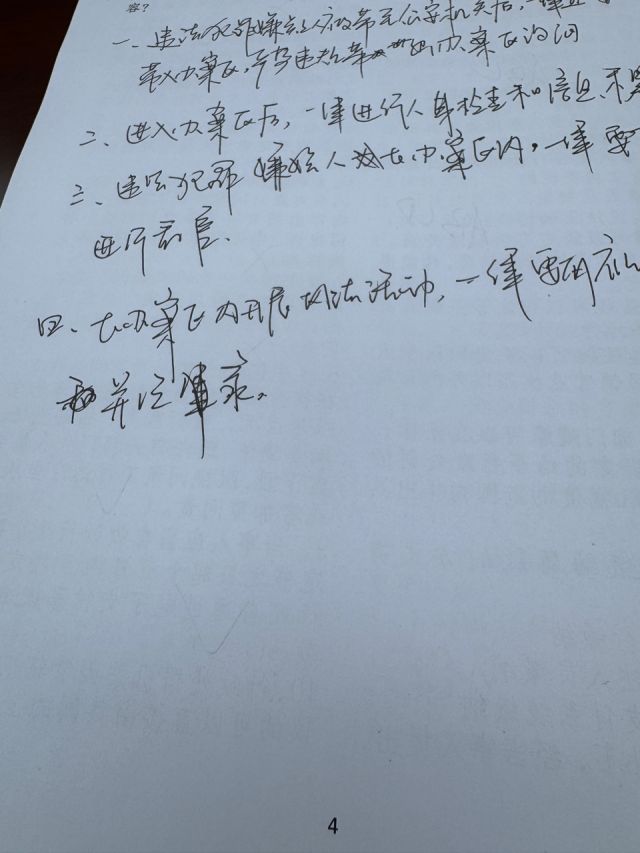 容?
一、违法犯罪嫌疑人被带至公安机关后,一律直
带入办案区,严 违 办案区询问
二、进入办案区后,一律进行人身检查和信息采
三、违法犯罪嫌疑人在办案区内,一律要
进行看管.
四、在办案区内开展执法活动,一律要有
并记录.
4